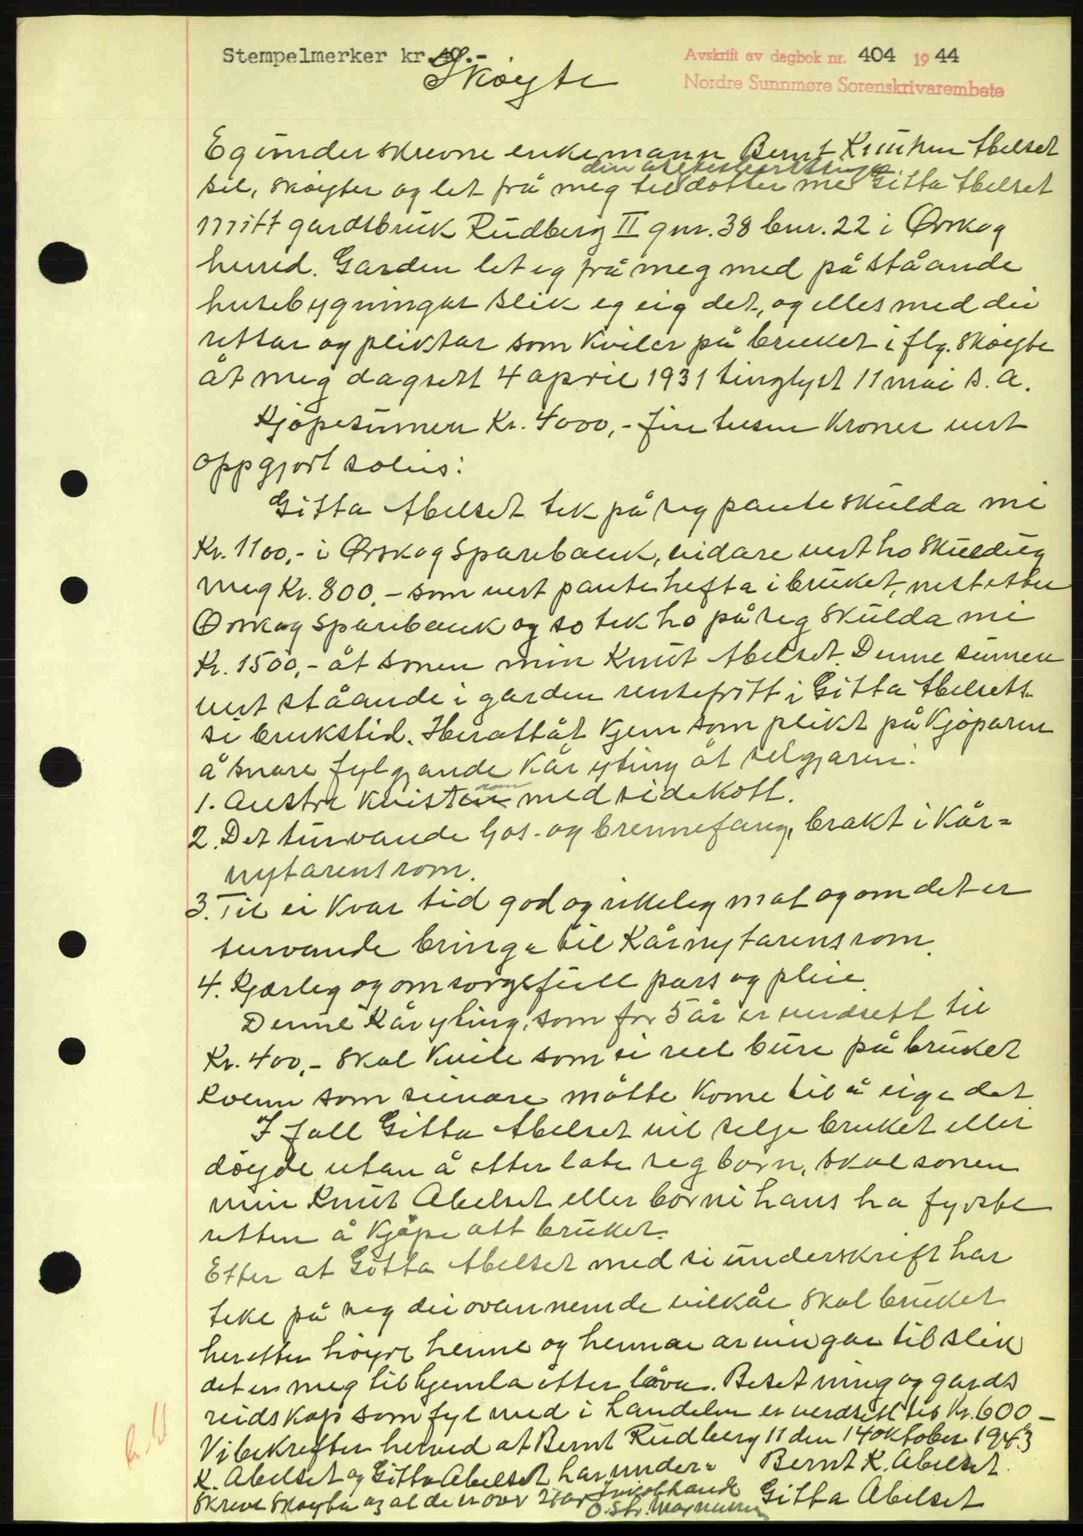 Stempelmerker kr. 40.-
Avskrift av dagbok nr. 404 1944
Nordre Sunnmøre Sorenskrivarembete
Skøyte
Eg underskrevne enkemann Bernt Knutsen Abelset
sel, skøyter og let frå meg til dotter mi Gitta Abelset
mitt gardsbruk Rudberg II gnr. 38 bnr. 22 i Ørskog
herred. Garden let eg frå meg med påståande
husebygningar slik eg eig det, og elles med dei
rettar og pliktar som kviler på bruket i flg. skøyte
åt meg dagsett 4 april 1931 tinglyst 11 mai s.a.
Kjøpesumen Kr. 4000,- fire tusen kroner vert
oppgjort soleis:
Gitta Abelset tek på seg panteskulda mi
Kr. 1100,- i Ørskog Sparebank, vidare vert ho skuldig
meg Kr. 800,- som vert pantehefta i bruket, nest etter
Ørskog Sparebank og so tek ho på seg skulda mi
Kr. 1500,- åt sonen min Knut Abelset. Denne sumen
vert ståande i garden rentefritt i Gitta Abelsets
si brukstid. Herattåt kjem som plikt på kjøparen
å svare fylgjande kåryting åt seljaren:
1. Austre kvist rom med sidekott.
2. Det turvande ljos- og brennefang, brakt i kår=
nytarens rom.
3. Til ei kvar tid god og rikeleg mat og om det er
turvande bringe til kårnytarens rom.
4. Kjærleg og omsorgsfull pass og pleie.
Denne kåryting, som for 5 år er verdsett til
Kr. 400,- skal kvile som ei reel bure på bruket
kvenn som seinare måtte kome til å eige det
I fall Gitta Abelset vil selge bruket eller
døyde utan å etterlate seg born, skal sonen
min Knut Abelset eller borni hans ha fyrste
retten å kjøpe att bruket.
Etter at Gitta Abelset med si underskrift har
teke på seg dei ovannemde vilkår skal bruket
heretter høyre henne og hennar arvingar til slik
det er meg tilhjemla etter lova. Besetning og gards
reidskap som fyl med i handelen er verdsett til Kr. 600-
Vi bekrefter herved at Bernt Rudberg 11 den 14 oktober 1943
K. Abelset og Gitta Abelset har under= Bernt K. Abelset.
skreve skøyta og at de er over 21 år Gitta Abelset